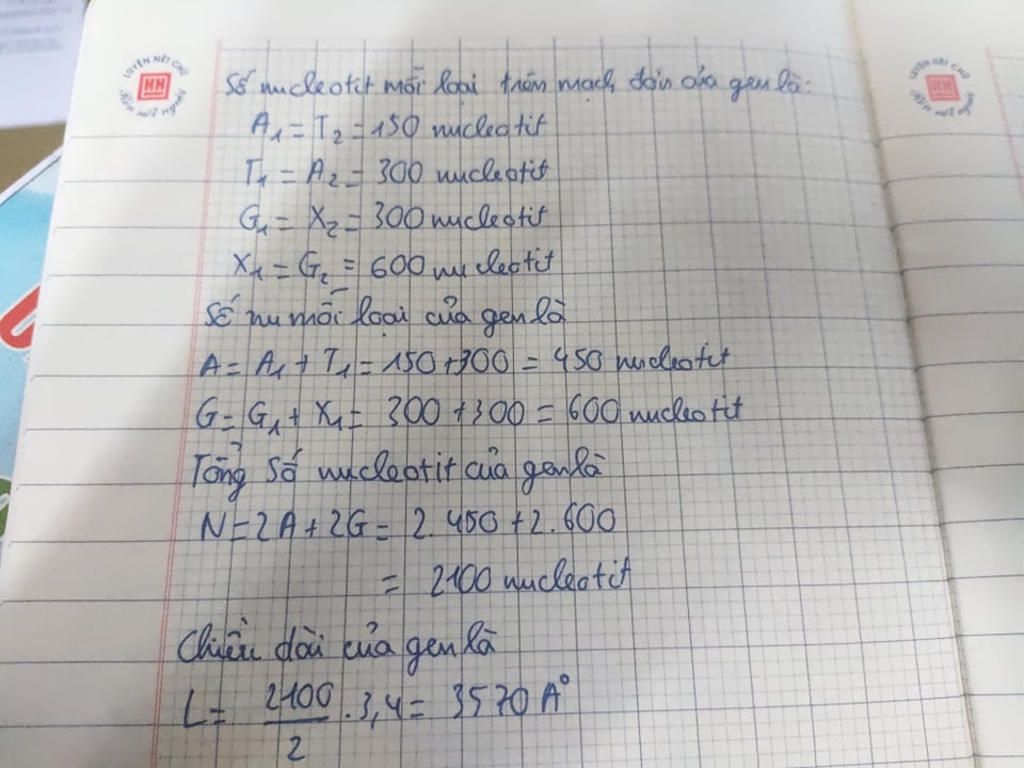 LUYỆN NÉT CHỮ
HN
Số nucleotit mỗi loại trên mạch đơn của gen là:
A₁ = T₂ = 150 nucleotit
T₁ = A₂ = 300 nucleotit
G₁ = X₂ = 300 nucleotit
X₁ = G₂ = 600 nucleotit
Số nu mỗi loại của gen là
A = A₁ + T₁ = 150 + 300 = 450 nucleotit
G = G₁ + X₁ = 300 + 300 = 600 nucleotit
Tổng số nucleotit của gen là
N = 2A + 2G = 2.450 + 2.600
= 2100 nucleotit
Chiều dài của gen là
L = 2100/2 . 3,4 = 3570 A°
HN